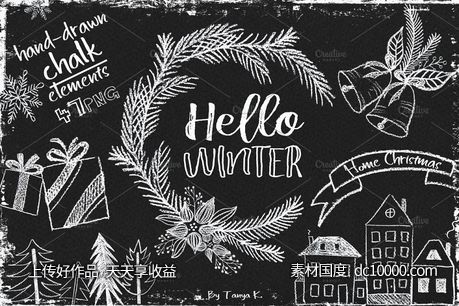 hand-drawn
chalk
elements
47 PNG
Hello
WINTER
Home Christmas
上传好作品,天天享收益
素材国度| dc10000.com
By Tanya K.